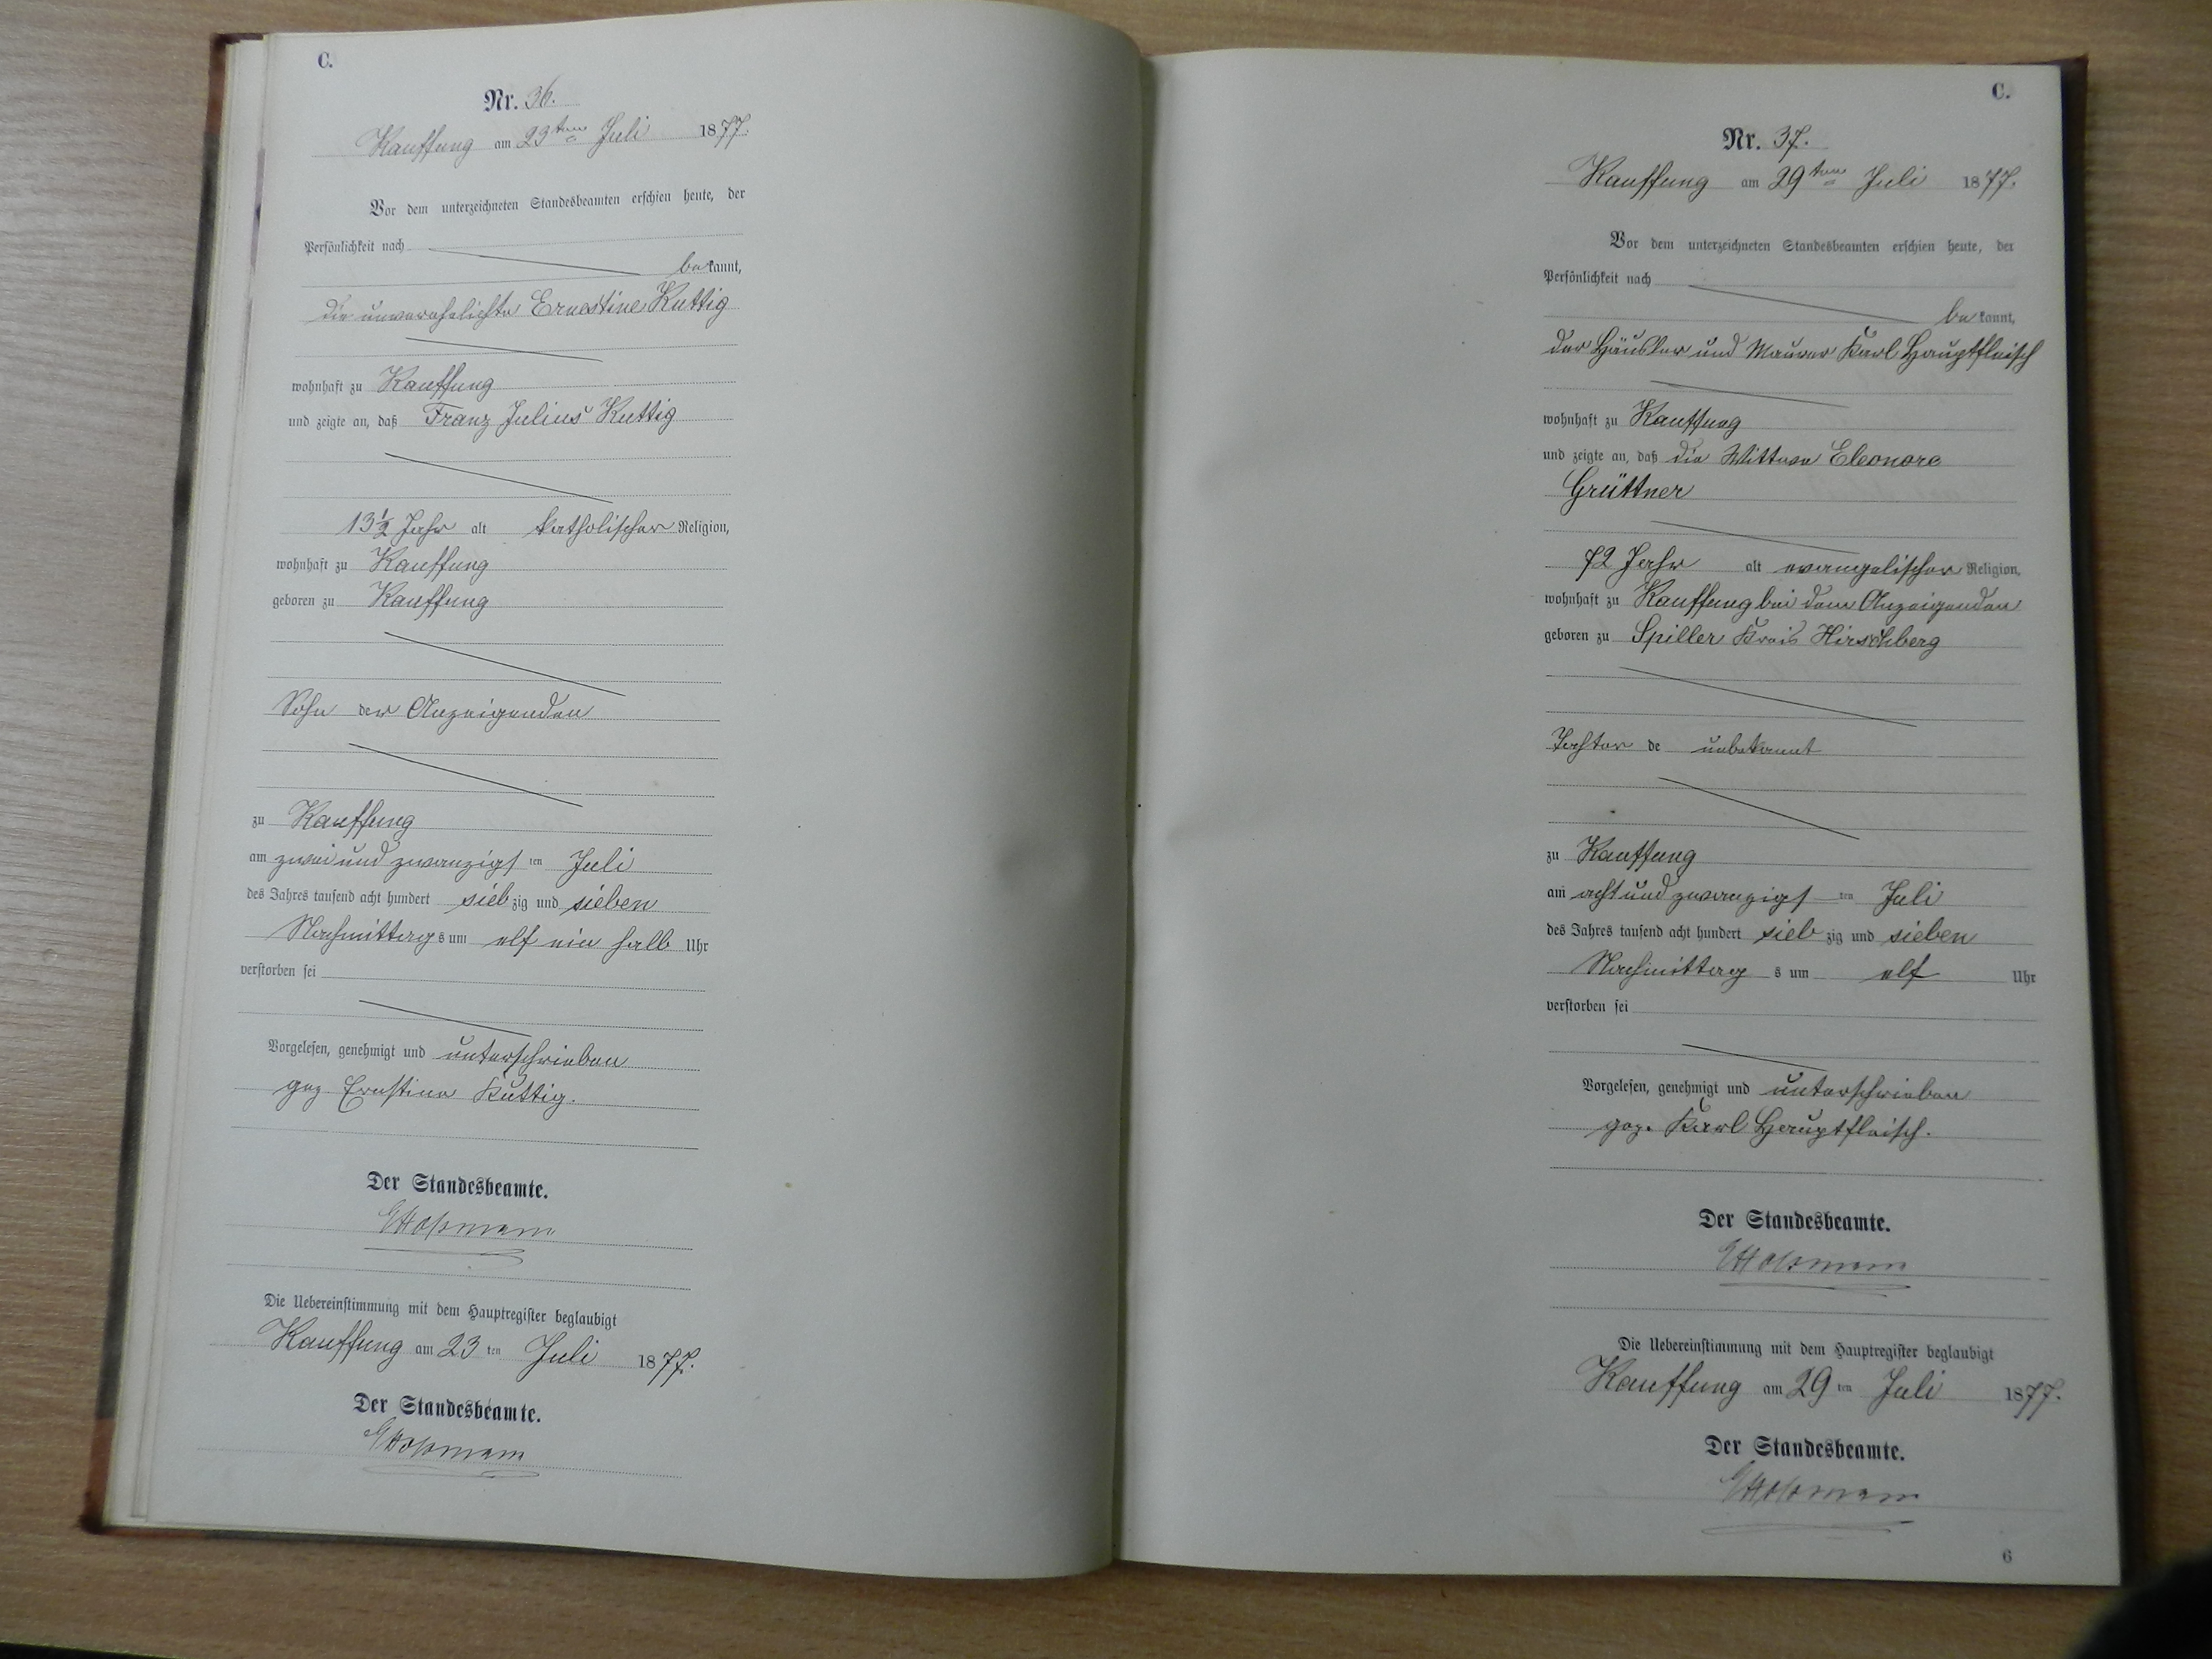 C.
Nr. 36.
Kauffung am 23ten Juli 1877.
Vor dem unterzeichneten Standesbeamten erschien heute, der
Persönlichkeit nach
bekannt,
die unverehelichte Ernestine Kuttig
wohnhaft zu Kauffung
und zeigte an, daß Franz Julius Kuttig
13½ Jahr alt katholischer Religion,
wohnhaft zu Kauffung
geboren zu Kauffung
Sohn der Anzeigenden
zu Kauffung
am zwei und zwanzigsten Juli
des Jahres tausend acht hundert siebzig und sieben
Nachmittags um elf ein halb Uhr
verstorben sei
Vorgelesen, genehmigt und unterschrieben
gez. Ernstine Kuttig.
Der Standesbeamte.
Die Uebereinstimmung mit dem Hauptregister beglaubigt
Kauffung am 23ten Juli 1877.
Der Standesbeamte.
C.
Nr. 37.
Kauffung am 29ten Juli 1877.
Vor dem unterzeichneten Standesbeamten erschien heute, der
Persönlichkeit nach
bekannt,
der Häusler und Maurer Karl Hauptfleisch
wohnhaft zu Kauffung
und zeigte an, daß die Wittwe Eleonore
Grüttner
72 Jahr alt evangelischer Religion,
wohnhaft zu Kauffung bei dem Anzeigenden
geboren zu Spiller Kreis Hirschberg
Tochter de unbekannt
zu Kauffung
am acht und zwanzigsten Juli
des Jahres tausend acht hundert siebzig und sieben
Nachmittags um elf Uhr
verstorben sei
Vorgelesen, genehmigt und unterschrieben
gez. Karl Hauptfleisch.
Der Standesbeamte.
Die Uebereinstimmung mit dem Hauptregister beglaubigt
Kauffung am 29ten Juli 1877.
Der Standesbeamte.
6